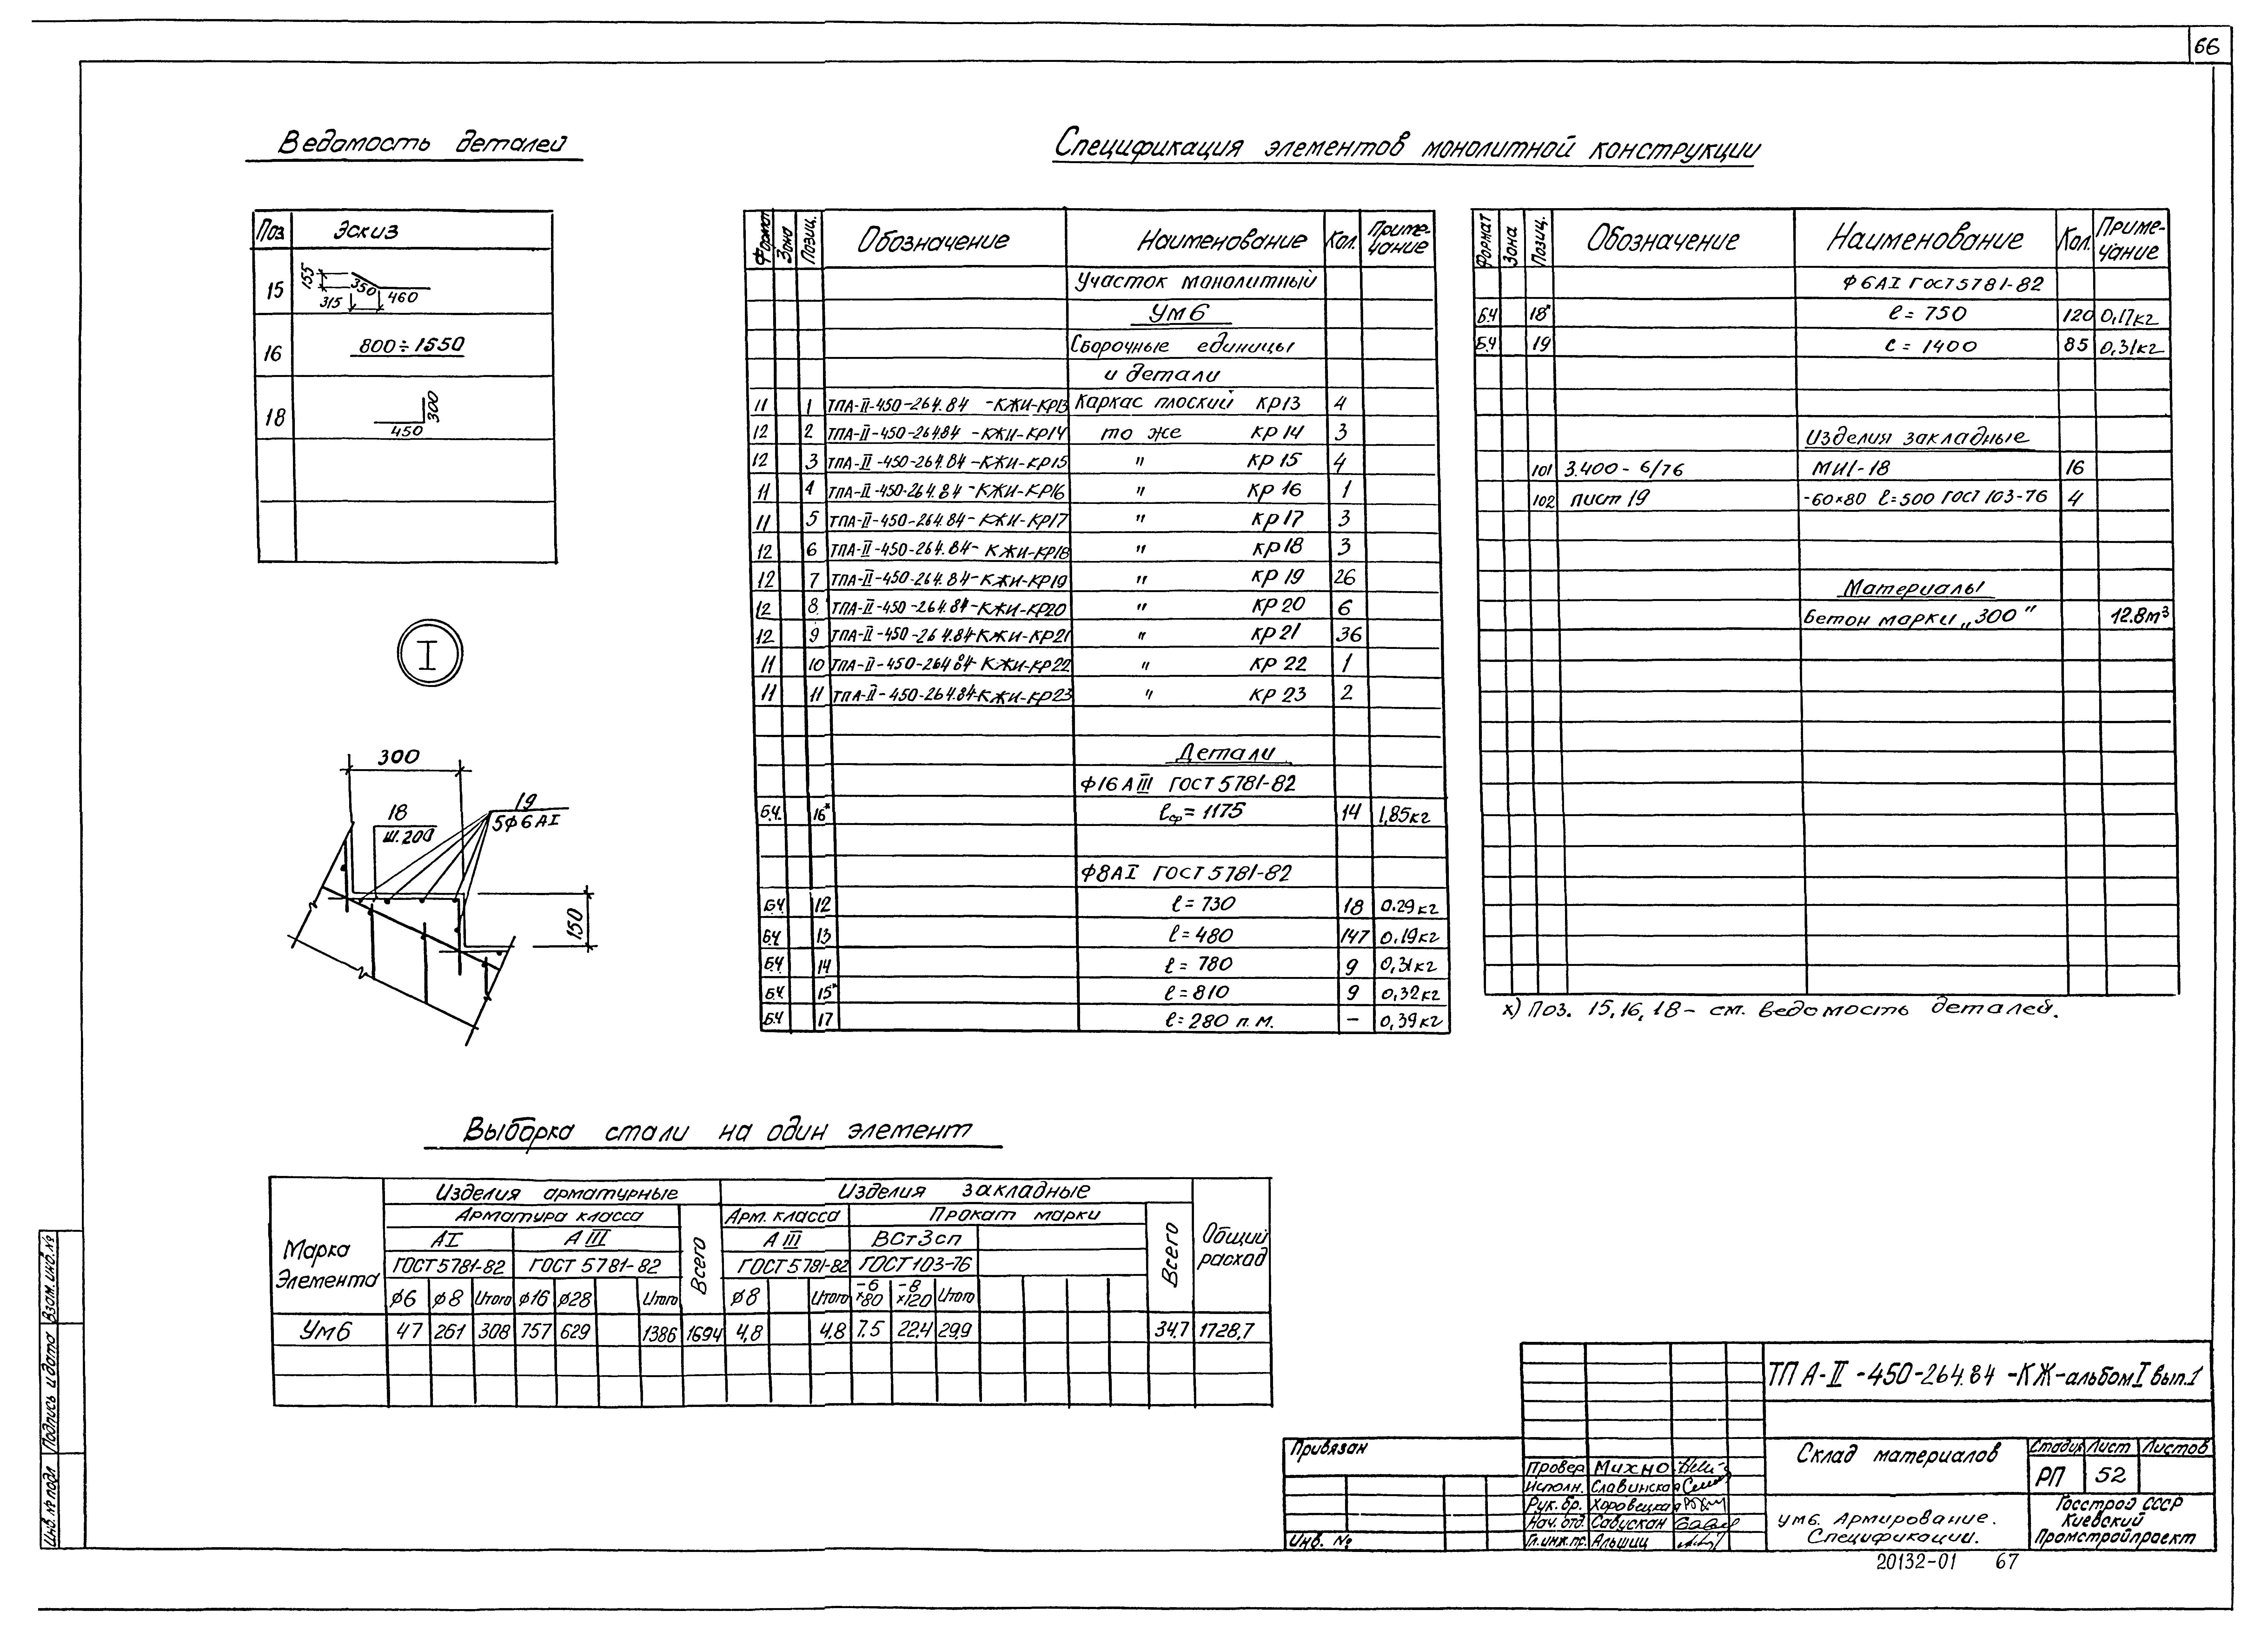 66
Ведомость деталей
Поз Эскиз
15 155 350 315 460
16 800÷1550
18 450 300
I
300
18
ш.200
19
5ϕ6АI
150
Спецификация элементов монолитной конструкции
Формат Зона Позиц. Обозначение Наименование Кол. Примечание
Участок монолитный
Ум6
Сборочные единицы
и детали
11 1 ТПА-II-450-264.84 -КЖИ-КР13 Каркас плоский КР13 4
12 2 ТПА-II-450-264.84 -КЖИ-КР14 то же КР14 3
12 3 ТПА-II-450-264.84-КЖИ-КР15 " КР15 4
11 4 ТПА-II-450-264.84-КЖИ-КР16 " КР16 1
11 5 ТПА-II-450-264.84-КЖИ-КР17 " КР17 3
12 6 ТПА-II-450-264.84-КЖИ-КР18 " КР18 3
12 7 ТПА-II-450-264.84-КЖИ-КР19 " КР19 26
12 8 ТПА-II-450-264.84-КЖИ-КР20 " КР20 6
12 9 ТПА-II-450-264.84-КЖИ-КР21 " КР21 36
11 10 ТПА-II-450-264.84-КЖИ-КР22 " КР22 1
11 11 ТПА-II-450-264.84-КЖИ-КР23 " КР23 2
Детали
ϕ16АIII ГОСТ 5781-82
Б.Ч. 16* ℓср=1175 14 1,85кг
ϕ8АI ГОСТ 5781-82
Б.Ч. 12 ℓ=730 18 0.29кг
Б.Ч. 13 ℓ=480 147 0,19кг
Б.Ч. 14 ℓ=780 9 0,31кг
Б.Ч. 15* ℓ=810 9 0,32кг
Б.Ч 17 ℓ=280 п.м. – 0,39кг
Формат Зона Позиц. Обозначение Наименование Кол. Примечание
ϕ6АI ГОСТ 5781-82
Б.Ч 18* ℓ=750 120 0,17кг
Б.Ч 19 ℓ=1400 85 0,31кг
Изделия закладные
101 3.400-6/76 МИ1-18 16
102 лист 19 -60×80 ℓ=500 ГОСТ 103-76 4
Материалы
Бетон марки „300" 12.8м³
х) Поз. 15,16,18 – см. ведомость деталей.
Выборка стали на один элемент
Марка Элемента Изделия арматурные Изделия закладные Общий расход
Арматура класса Всего Арм. класса Прокат марки Всего
АI АIII АIII ВСт3сп
ГОСТ 5781-82 ГОСТ 5781-82 ГОСТ 5781-82 ГОСТ 103-76
ϕ6 ϕ8 Итого ϕ16 ϕ28 Итого ϕ8 Итого -6×80 -8×120 Итого
Ум6 47 261 308 757 629 1386 1694 4,8 4,8 7.5 22,4 29,9 34,7 1728,7
Взам.инв.№
Подпись и дата
Инв.№ подл
Привязан
Инв. №
Провер Михно
Исполн. Славинская
Рук.бр. Хоровецкая
Нач.отд. Савускан
Гл.инж.пр. Альшиц
ТП А-II-450-264.84 -КЖ-альбом I вып.1
Склад материалов
Стадия Лист Листов
РП 52
Ум6. Армирование.
Спецификации.
Госстрой СССР
Киевский
Промстройпроект
20132-01 67